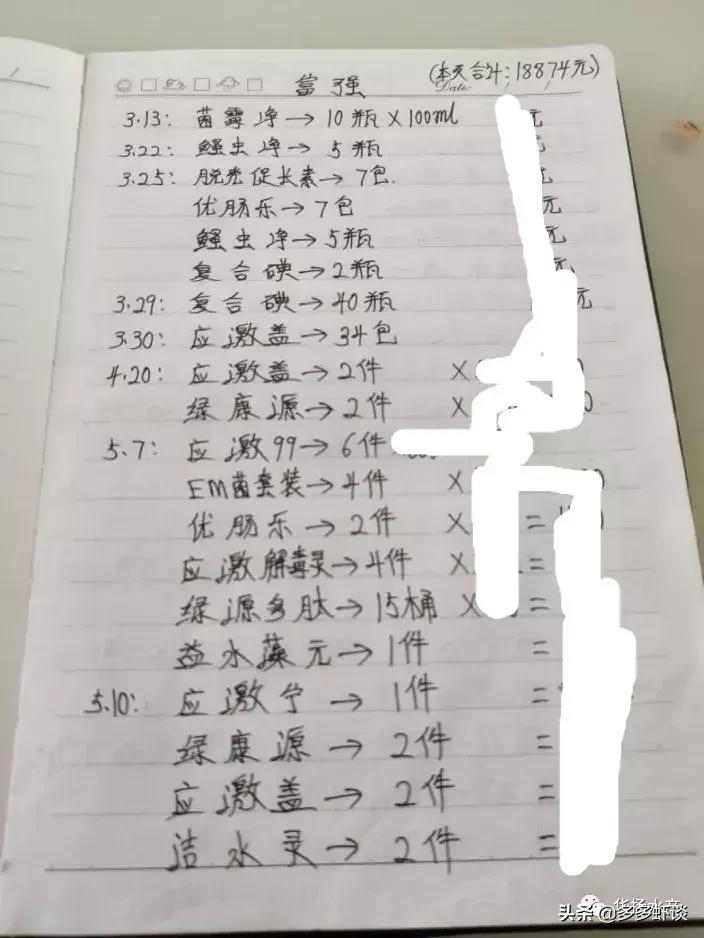 富强 (本页合计:18874元)
Date: / /
3.13: 菌霉净→10瓶×100ml 元
3.22: 鳋虫净→5瓶 元
3.25: 脱壳促长素→7包. 元
优肠乐→7包 元
鳋虫净→5瓶 元
复合碘→2瓶 元
3.29: 复合碘→40瓶 元
3.30: 应激盖→34包
4.20: 应激盖→2件 ×
绿康源→2件 ×
5.7: 应激99→6件
EM菌套装→4件 ×
优肠乐→2件 × =
应激解毒灵→4件 × =
绿源多肽→15桶 × =
益水藻元→1件 =
5.10: 应激宁→1件 =
绿康源→2件 =
应激盖→2件 =
洁水灵→2件 =
华扬水产
头条@多多虾谈